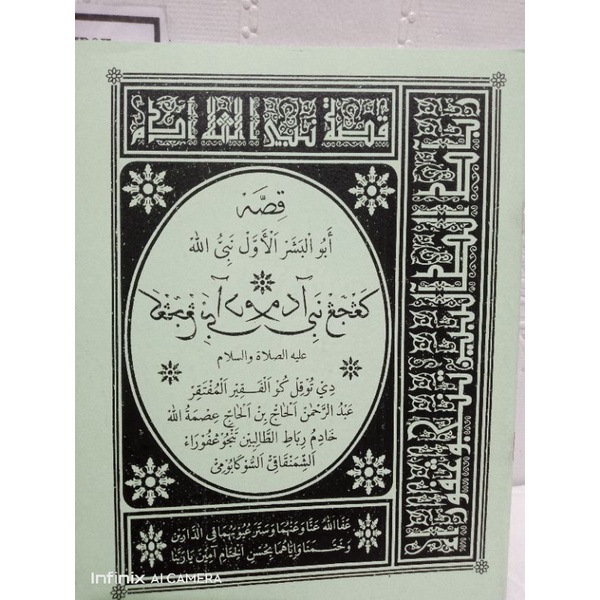 قصة نبي الله أدم
قِصَّهْ
أَبُو الْبَشَرْ اَلْأَوَّلْ نَبِيُّ اللهْ
كڠجڠ نبي آدم
عليه الصلاة والسلام
دِيْ تُوْقِلْ كُوْ اَلْفَقِيْرْ اَلْمُفْتَقِرْ
عَبْدُ الرَّحْمٰنْ اَلْحَاجّْ بِنْ اَلْحَاجّْ عِصْمَةُ اللهْ
خَادِمُ رِبَاطِ الطَّالِبِيْن تَنْجُوْغفُوْرَاءْ
اَلشِّمَنْقَاقِيْ اَلسُّوْكَابُوْمِيْ
عَفَا اللهُ عَنَّا وَعَنْهُمَا وَسَتَرَ عُيُوْبَهُمَا فِي الدَّارَيْنِ
وَخَتَمْنَا وَاِيَّاهُمَا بِحُسْنِ الْخِتَامِ آمِيْنَ يَا رَبَّنَا
Infinix AI CAMERA